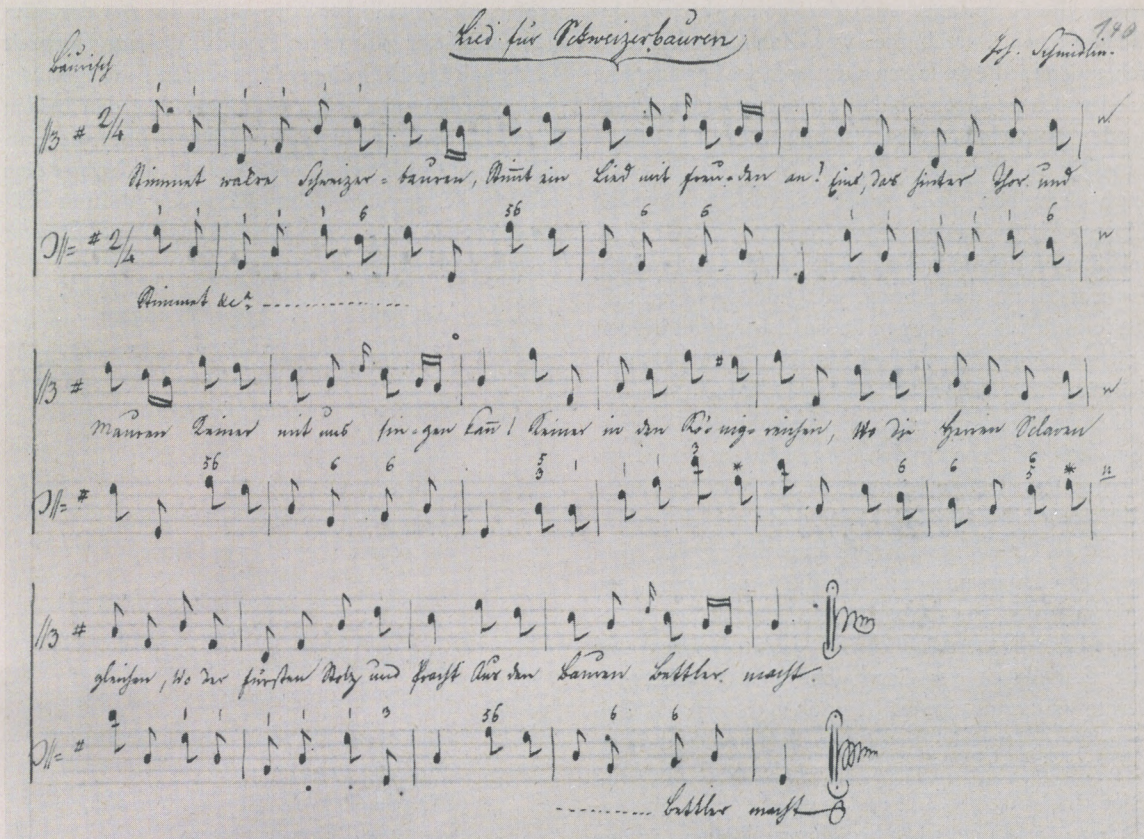 140
Lied für Schweizerbauren
Joh. Schmidlin.
Bäurisch
2/4
Stimmet wakre Schweizer-bauren, Stimt ein Lied mit freu-den an! Eins, das hinter Thor und
6 56 6 6 6
2/4
Stimmet &c.
Mauren Keiner mit uns sin-gen kan! Keiner in den Kö-nig-reichen, Wo die Herren Sclaven
56 6 6 5 3 3 * 6 6 6 5 *
gleichen, Wo der fürsten Stolz und Pracht Aus den Bauren Bettler macht.
3 56 6 6
Bettler macht